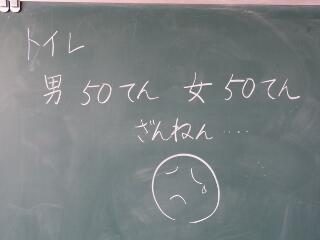 トイレ
男 50てん 女 50てん
ざんねん....